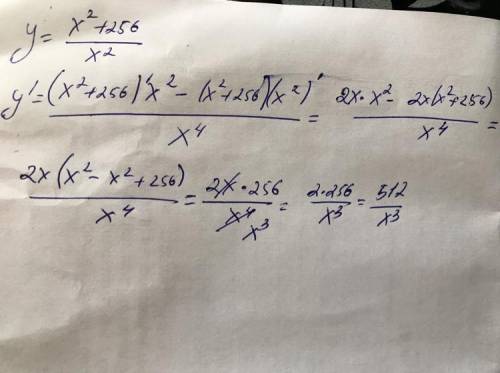 y = (x² + 256) / x²
y' = ((x² + 256)' x² - (x² + 256)(x²)') / x⁴ = (2x · x² - 2x(x² + 256)) / x⁴ =
(2x(x² - x² + 256)) / x⁴ = (2x · 256) / x⁴ x³ = (2 · 256) / x³ = 512 / x³